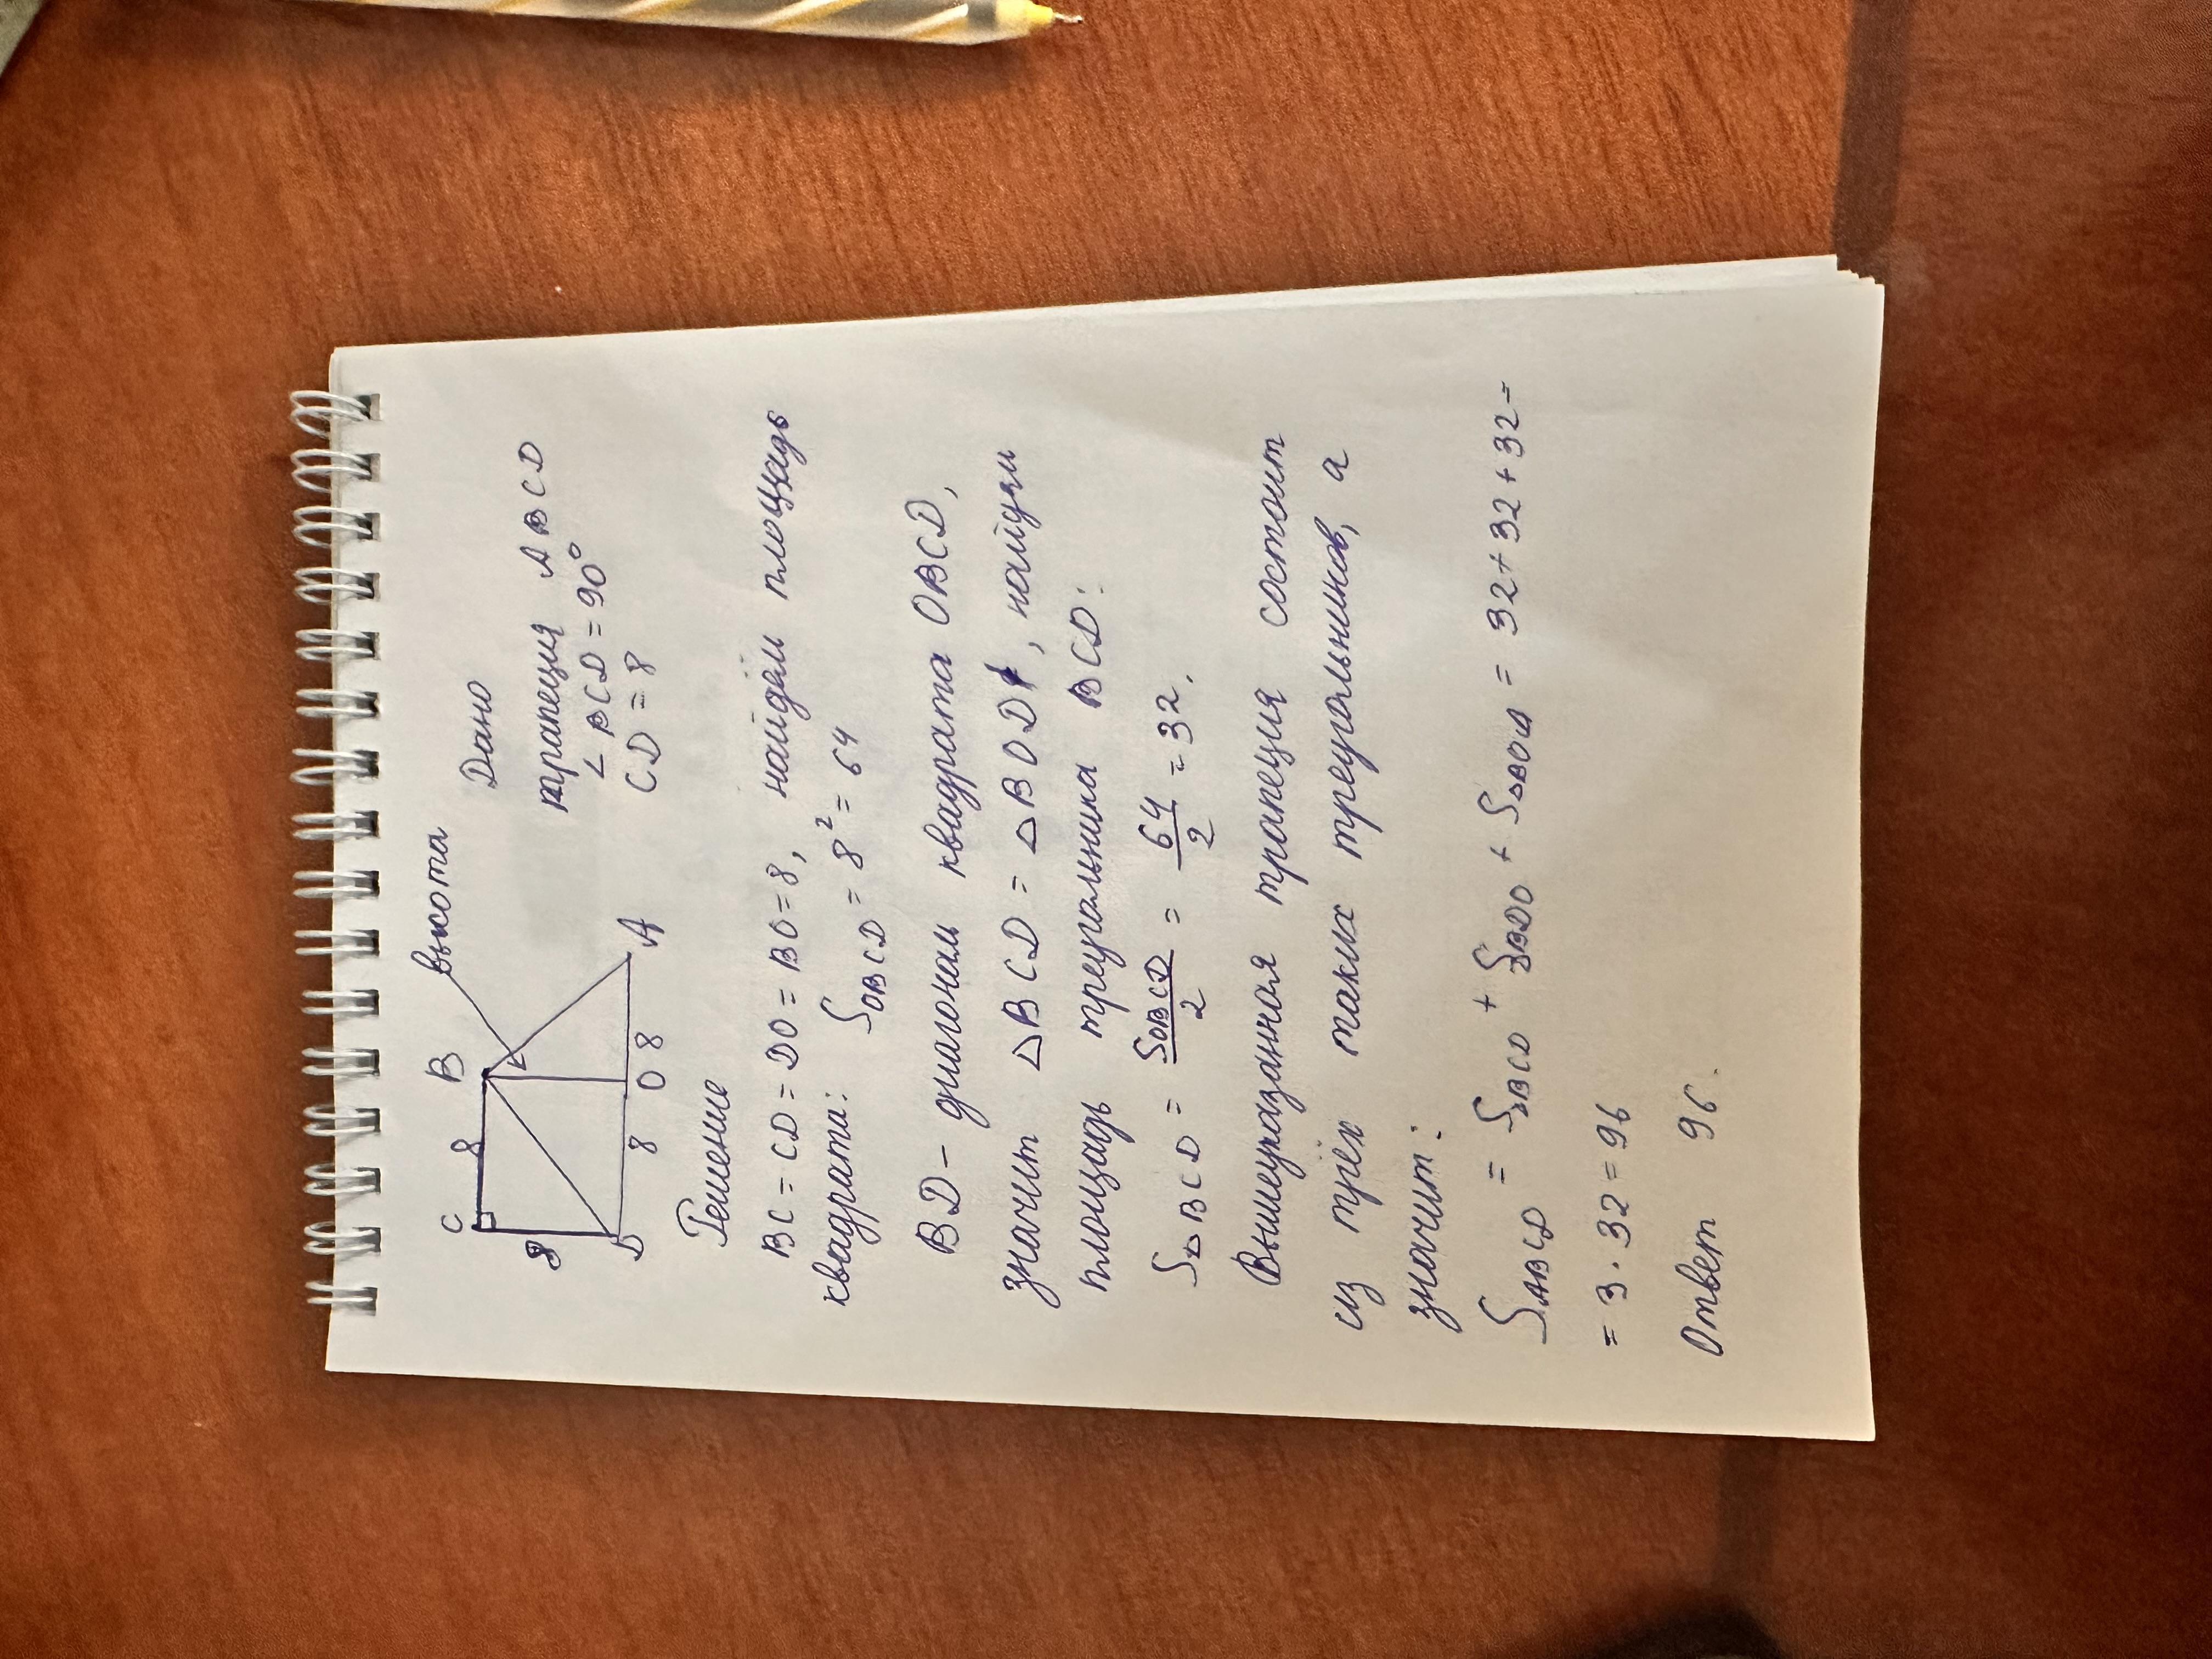 высота
Дано
C 8 B
трапеция ABCD
8
∠BCD = 90°
D 8 O 8 A
CD = 8
Решение
BC = CD = DO = BO = 8, найдём площадь
квадрата: S_OBCD = 8² = 64
BD – диагонам квадрата OBCD,
значит △BCD = △BOD, найдём
площадь треугольника BCD:
S△BCD = S_OBCD/2 = 64/2 = 32.
Вышеуказанная трапеция состоит
из трёх таких треугольников, а
значит:
S_ABCD = S△BCD + S△BDO + S△BOA = 32 + 32 + 32 =
= 3 · 32 = 96
Ответ 96.